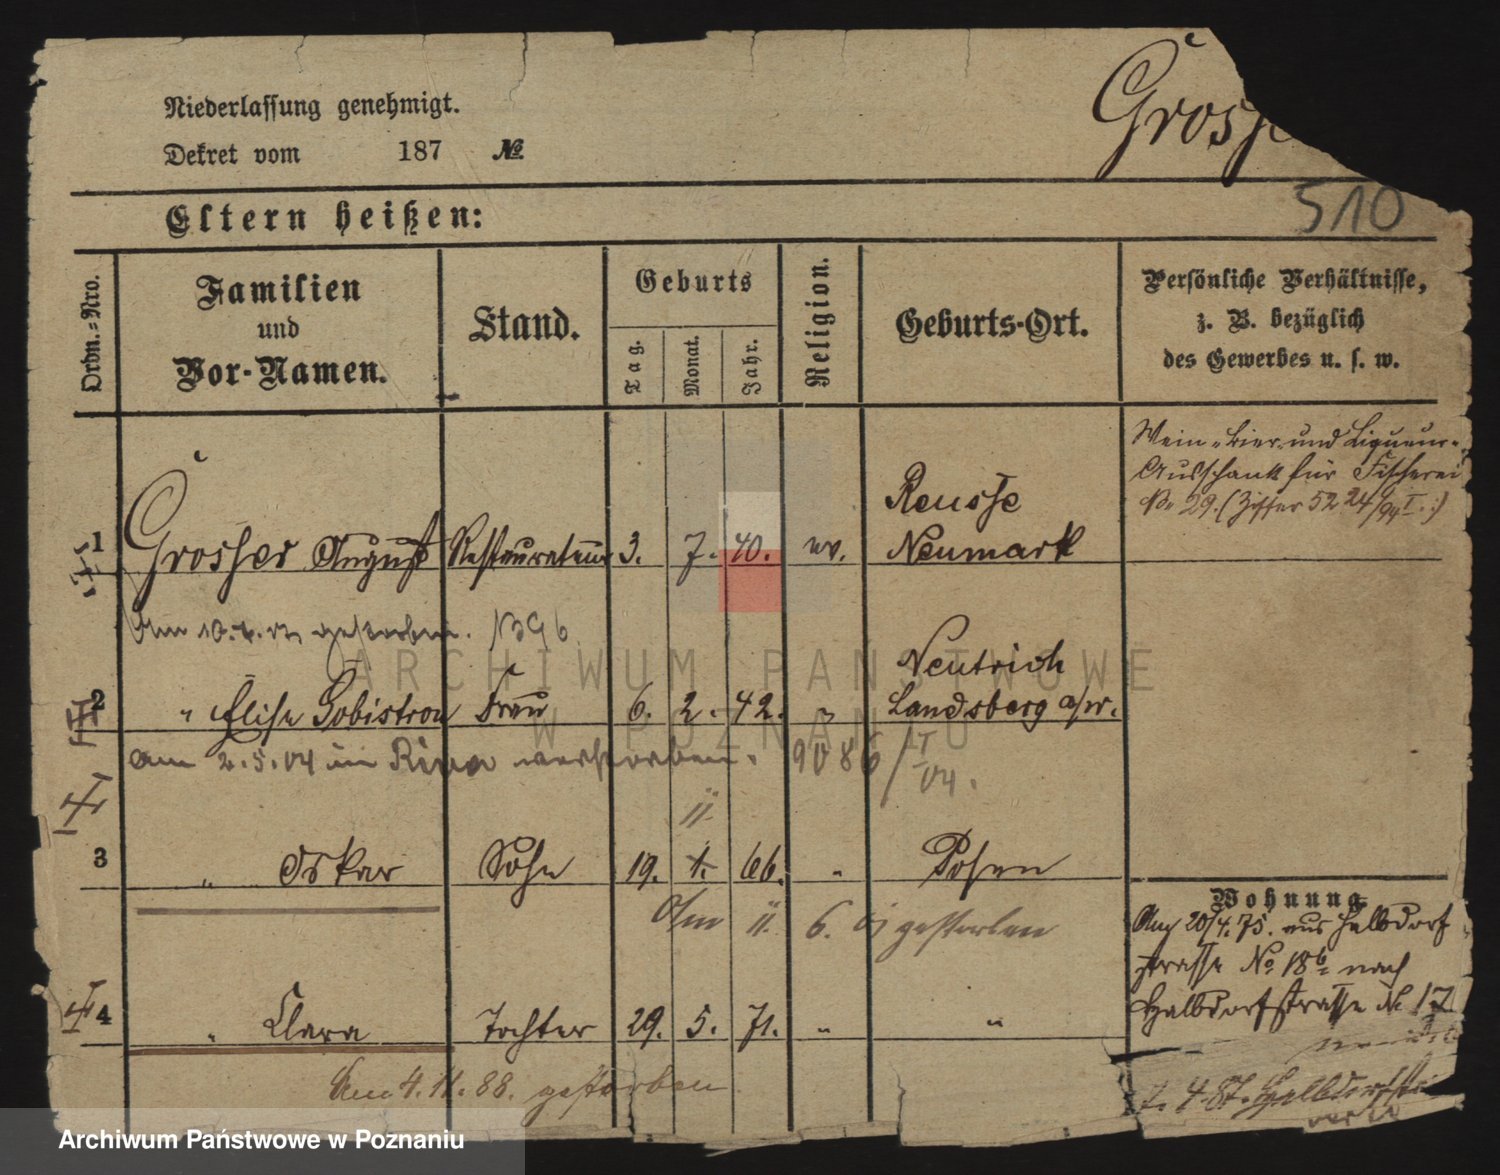 Niederlassung genehmigt.
Dekret vom 187 №
Grosse
510
Eltern heißen:
Ordn.=Nro.
Familien
und
Vor-Namen.
Stand.
Geburts
Tag.
Monat.
Jahr.
Religion.
Geburts-Ort.
Persönliche Verhältnisse,
z. B. bezüglich
des Gewerbes u. s. w.
Wein- Bier- und Liqueur-
Ausschank für Fischerei
No 29. (Ziffer 52 24/94 I.)
Reusse
1 Grosser August Restaurateur 3. 7. 40. ev. Neumark
Am 10. gestorben.
Neutrich
2 " Elise Frau 6. 2. 42. " Landsberg a/w.
am 2.5.04 in verstorben. 9086/I 04.
11.
3 " Oskar Sohn 19. 1. 66. " Posen
11. 6. gestorben
Wohnung
Aug 20/4.75. aus Halbdorf
strasse No 18b nach
Halbdorfstrasse N. 17
4 " Clara Tochter 29. 5. 71. " "
Am 4.11.88. gestorben
7. 4. 87. Halbdorfstr
ARCHIWUM PAŃSTWOWE
W POZNANIU
Archiwum Państwowe w Poznaniu